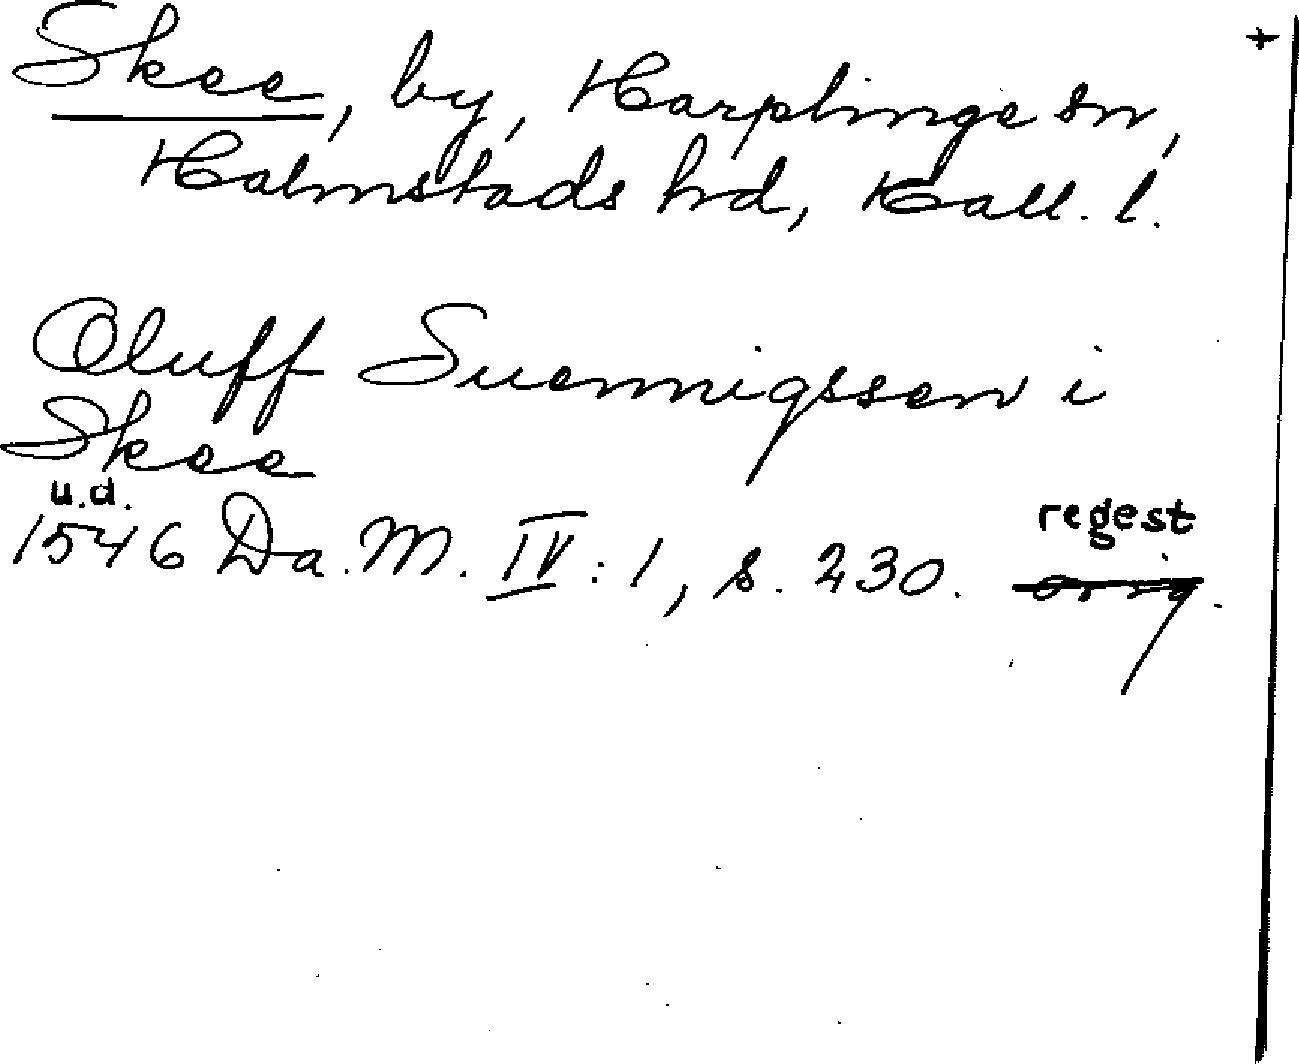 Skee, by, Harplinge sn, +
Halmstads hd, Hall. l.
Oluff Suennigssen i
Skee
u.d.
1546 Da. M. IV: 1, s. 230. regest
orig.